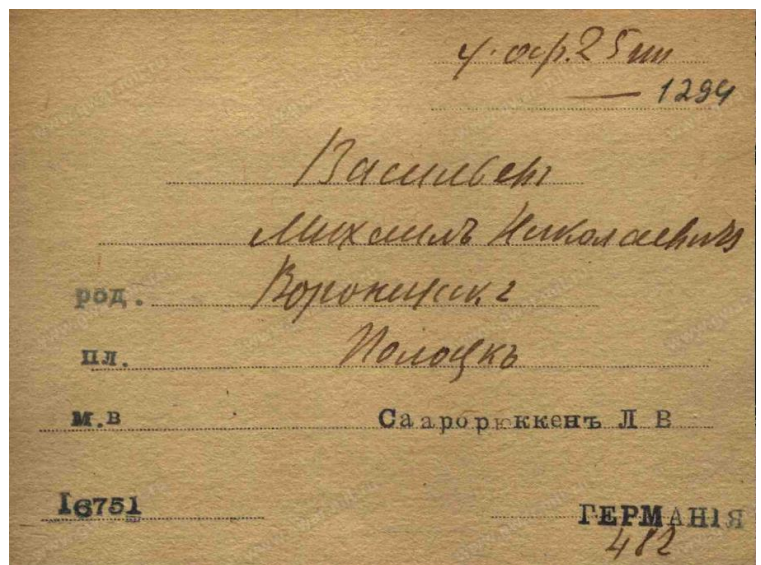 25
1294
Васильев
Михаилъ Николаевичъ
род. Воронежск. г
пл. Полоцкъ
м.в Саарбрюккенъ Л В
16751 ГЕРМАНІЯ
482